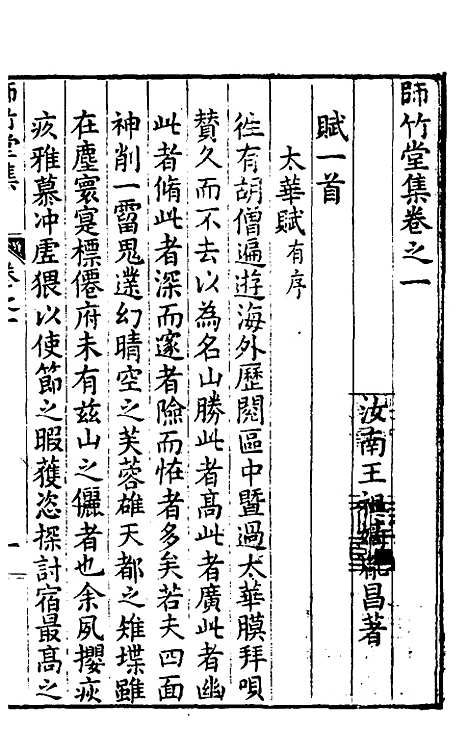 師竹堂集卷之一
汝南王祖嫡胤昌著
賦一首
太華賦有序
徃有胡僧遍遊海外歷閱區中暨過太華膜拜唄
賛久而不去以為名山勝此者高此者廣此者幽
此者脩此者深而邃者險而恠者多矣若夫四面
神削一霤鬼遳幻晴空之芙蓉雄天都之雉堞雖
在塵寰寔標僊府未有兹山之儷者也余夙攖疢
疚雅慕冲虛猥以使節之暇獲恣探討宿最高之
師竹堂集
卷之一
一